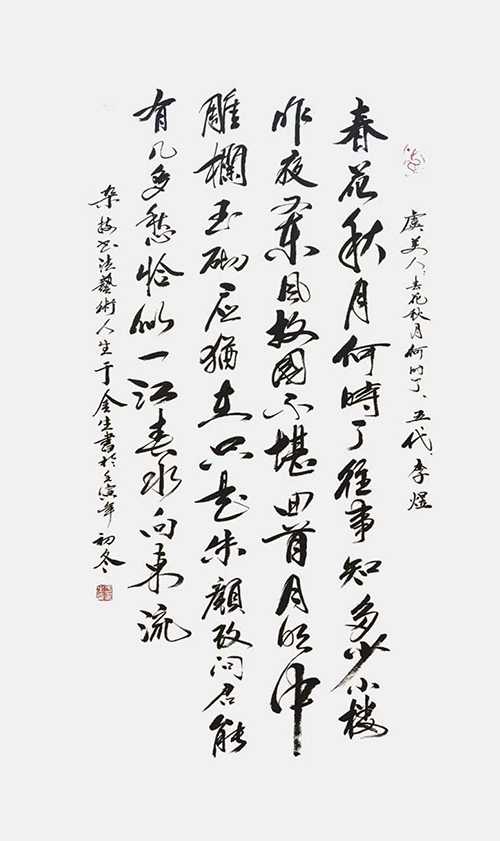 虞美人：春花秋月何时了、五代、李煜
春花秋月何時了往事知多少小樓
昨夜又東風故國不堪回首月明中
雕欄玉砌应猶在只是朱顏改问君能
有几多愁恰似一江春水向東流
杂技书法藝術人生于金生書於壬寅年初冬